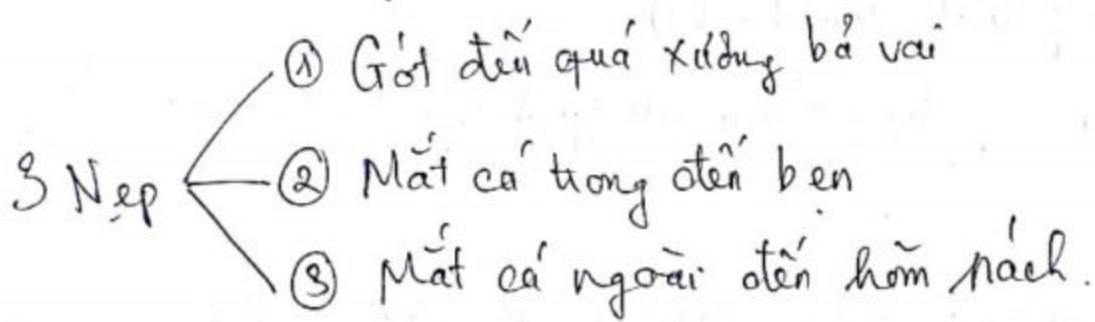 ① Gót đến quá xương bả vai
3 Nẹp
② Mắt cá trong đến bẹn
③ Mắt cá ngoài đến hõm nách.